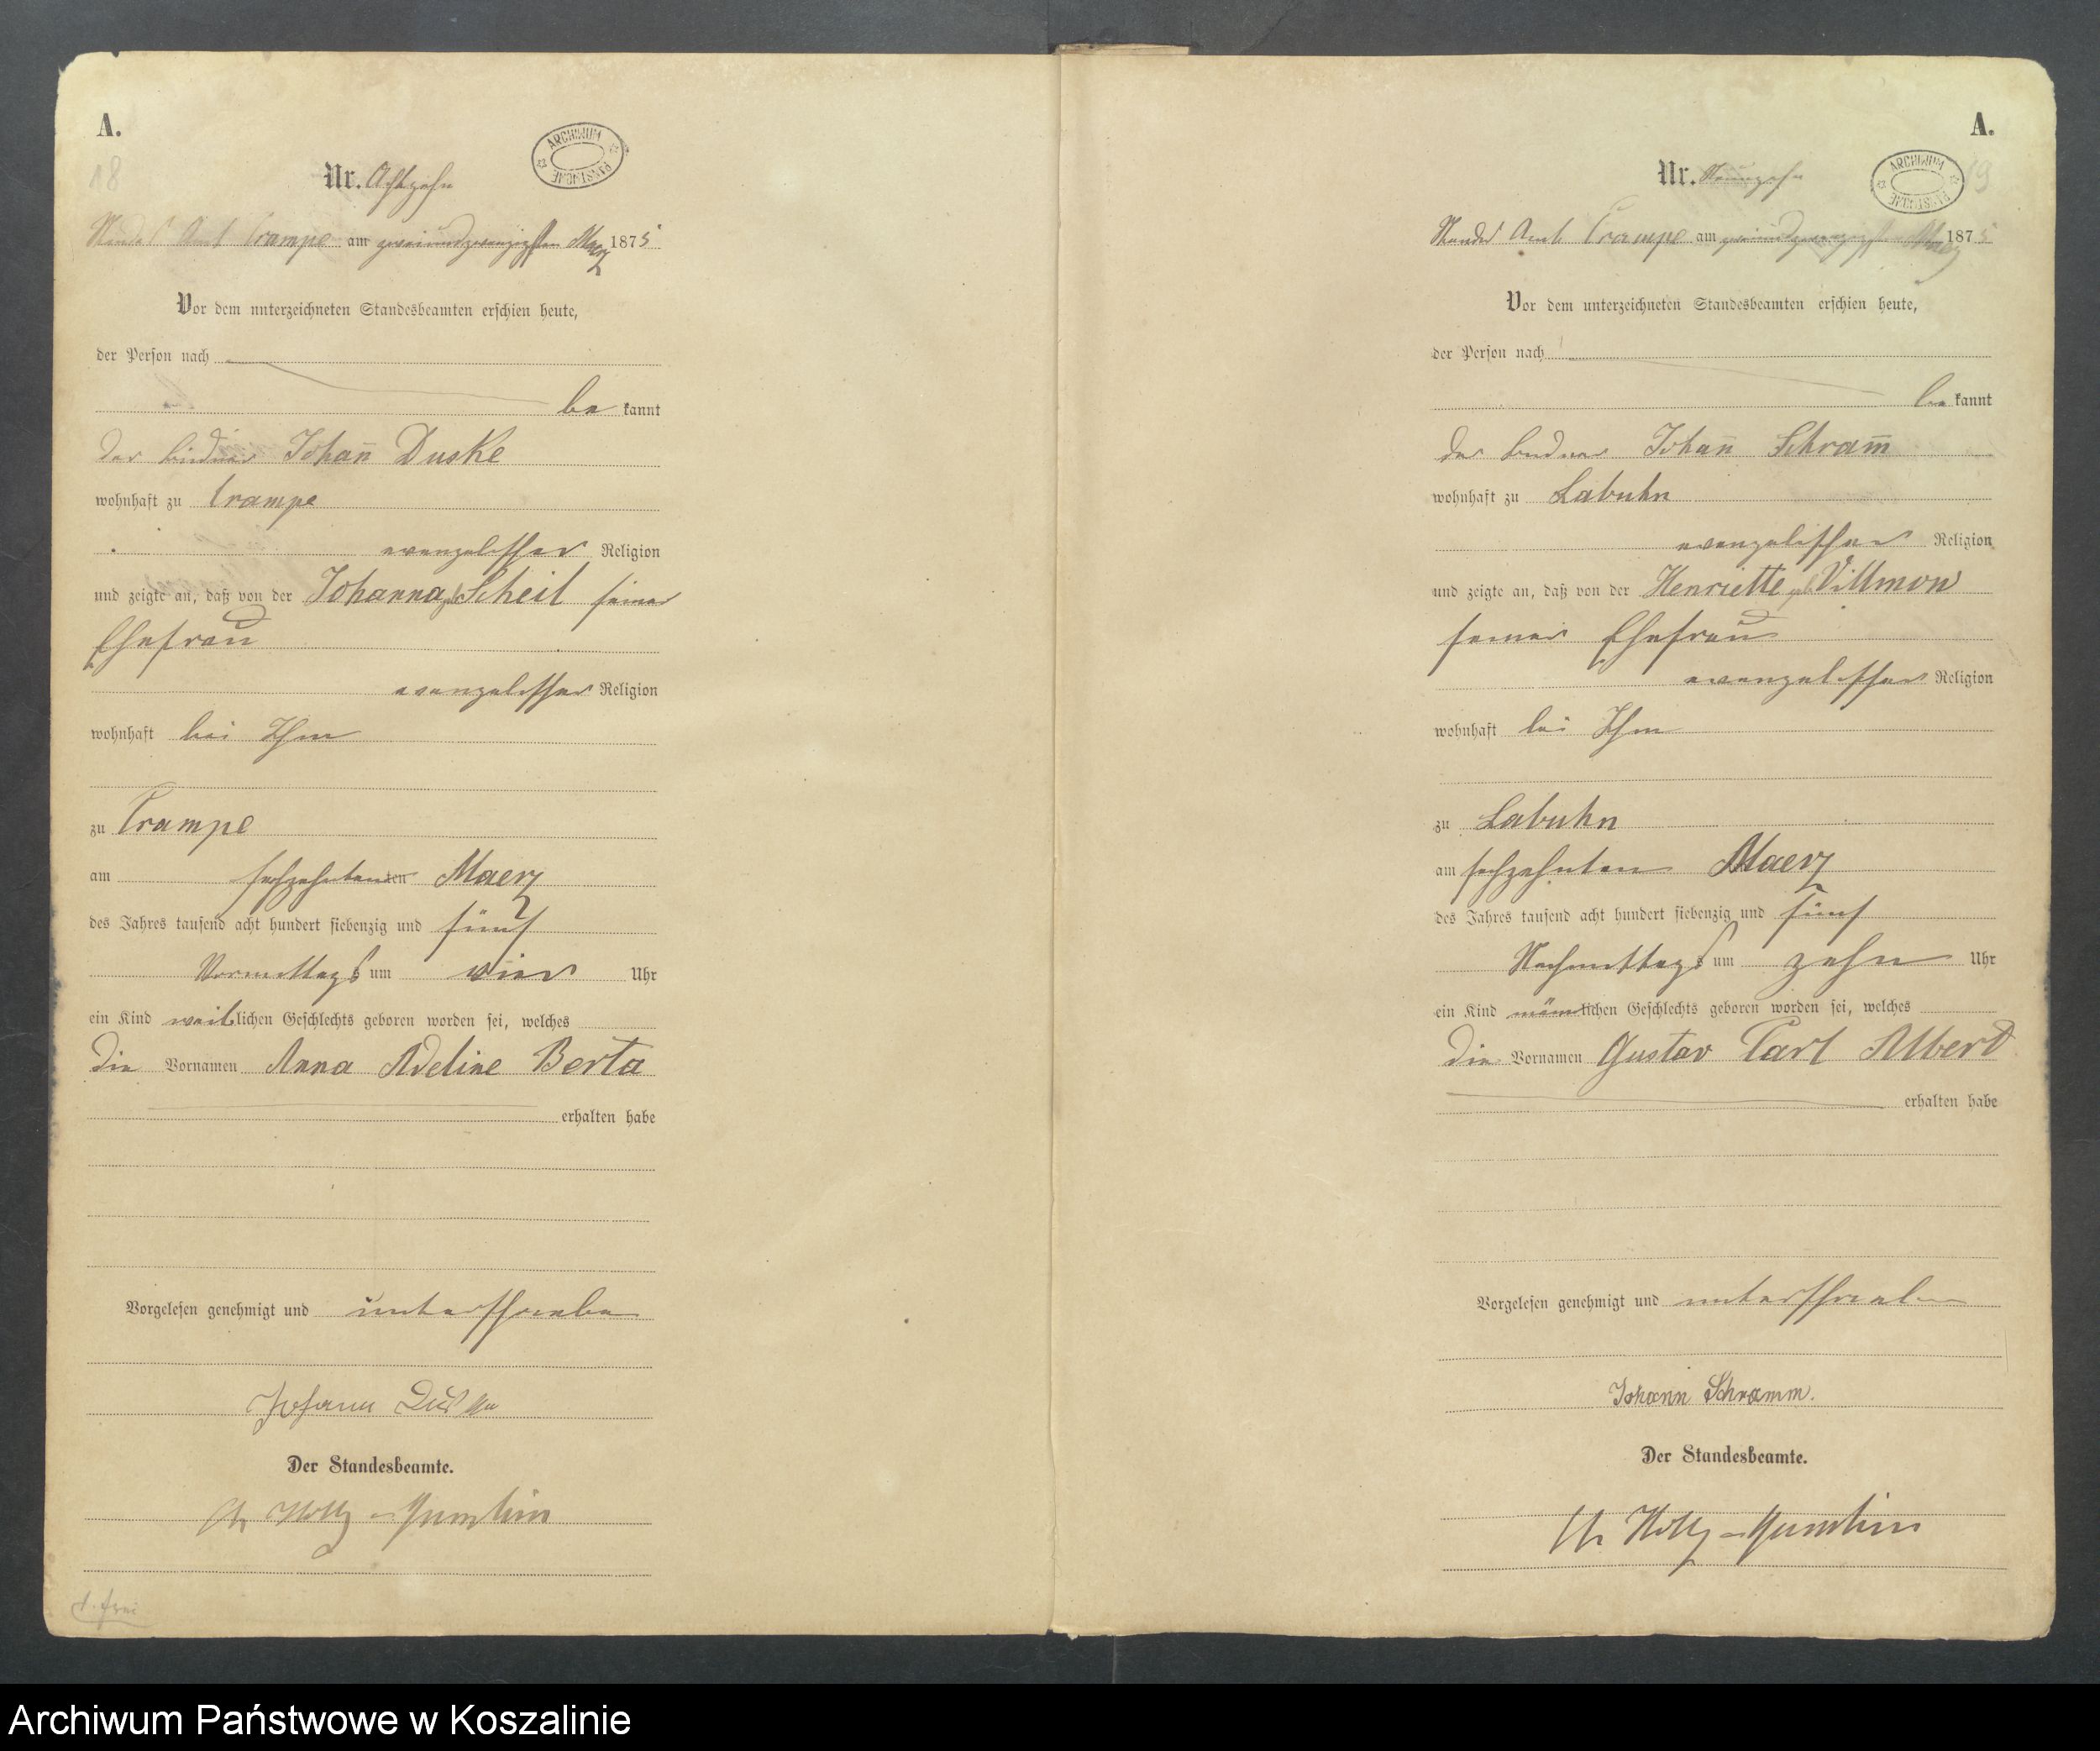 A.
18
Nr. Achtzehn
ARCHIWUM PAŃSTWOWE
Standes Amt Crampe am zweiundzwanzigsten Maerz 1875
Vor dem unterzeichneten Standesbeamten erschien heute,
der Person nach
be kannt
der Büdner Johan̄ Duske
wohnhaft zu Crampe
evangelischer Religion
und zeigte an, daß von der Johanna geb Scheil seiner
Ehefrau
evangelischer Religion
wohnhaft bei Ihm
zu Crampe
am sechzehntenten Maerz
des Jahres tausend acht hundert siebenzig und fünf
Vormittags um vier Uhr
ein Kind weiblichen Geschlechts geboren worden sei, welches
die Vornamen Anna Adeline Berta
erhalten habe
Vorgelesen genehmigt und unterschrieben
Johann Duske
Der Standesbeamte.
A.
19
Nr. Neunzehn
ARCHIWUM PAŃSTWOWE
Standes Amt Crampe am zweiundzwanzigsten Maerz 1875
Vor dem unterzeichneten Standesbeamten erschien heute,
der Person nach
be kannt
der Büdner Johan̄ Schram̄
wohnhaft zu Labuhn
evangelischer Religion
und zeigte an, daß von der Henriette geb Villmow
seiner Ehefrau
evangelischer Religion
wohnhaft bei Ihm
zu Labuhn
am sechzehnten Maerz
des Jahres tausend acht hundert siebenzig und fünf
Nachmittags um zehn Uhr
ein Kind männlichen Geschlechts geboren worden sei, welches
die Vornamen Gustav Carl Albert
erhalten habe
Vorgelesen genehmigt und unterschrieben
Johann Schramm.
Der Standesbeamte.
Archiwum Państwowe w Koszalinie